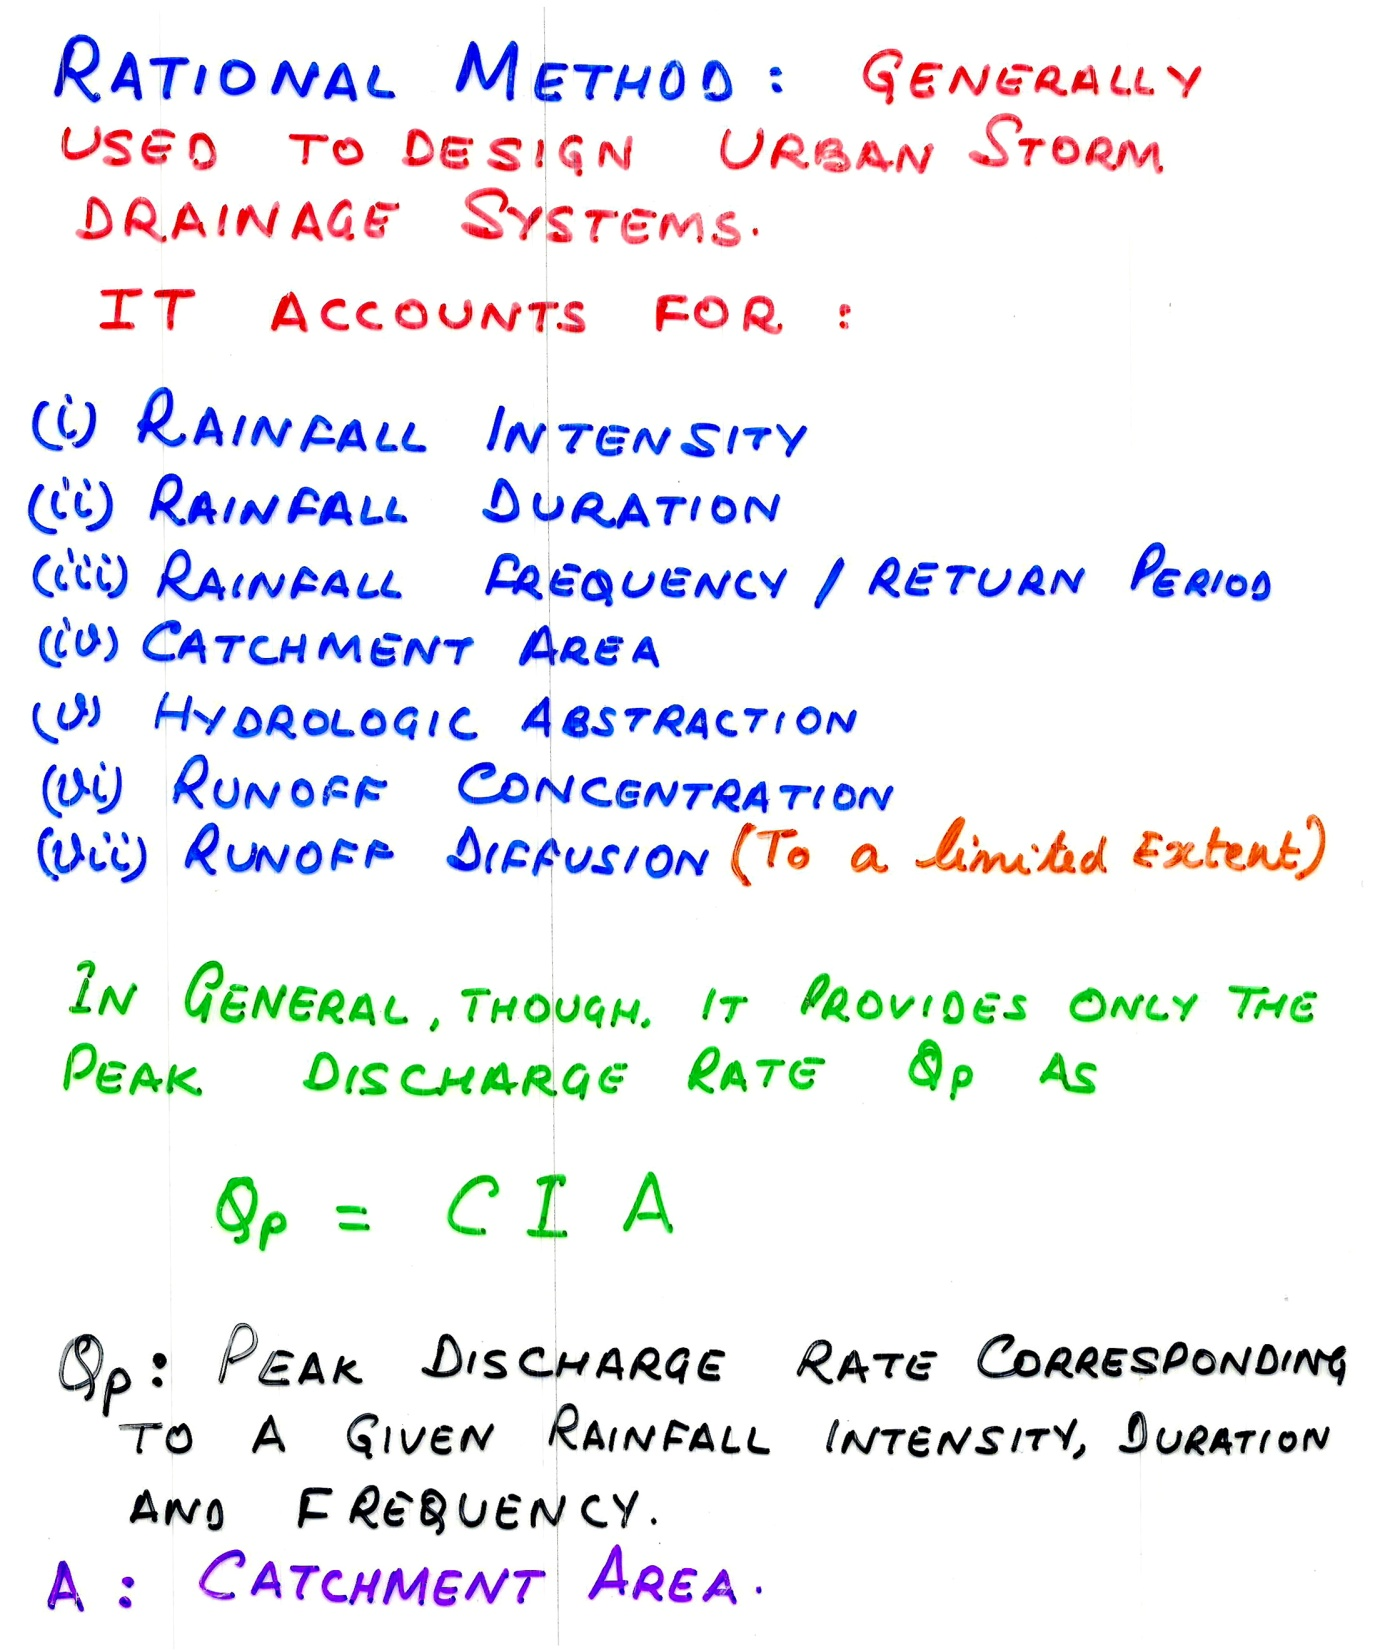 RATIONAL METHOD: GENERALLY
USED TO DESIGN URBAN STORM
DRAINAGE SYSTEMS.
IT ACCOUNTS FOR:
(i) RAINFALL INTENSITY
(ii) RAINFALL DURATION
(iii) RAINFALL FREQUENCY / RETURN PERIOD
(iv) CATCHMENT AREA
(v) HYDROLOGIC ABSTRACTION
(vi) RUNOFF CONCENTRATION
(vii) RUNOFF DIFFUSION (To a limited Extent)
IN GENERAL, THOUGH, IT PROVIDES ONLY THE
PEAK DISCHARGE RATE Qp AS
Qp = C I A
Qp: PEAK DISCHARGE RATE CORRESPONDING
TO A GIVEN RAINFALL INTENSITY, DURATION
AND FREQUENCY.
A: CATCHMENT AREA.